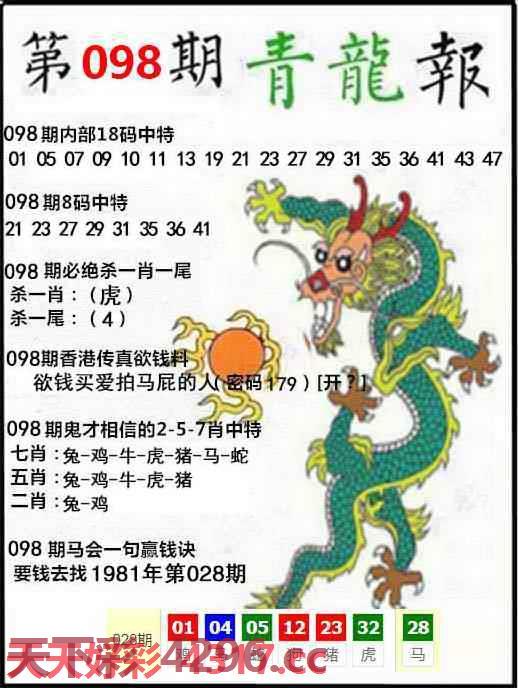 第098期青龍報
098期内部18码中特
01 05 07 09 10 11 13 19 21 23 27 29 31 35 36 41 43 47
098期8码中特
21 23 27 29 31 35 36 41
098 期必绝杀一肖一尾
杀一肖：（虎）
杀一尾：（4）
098期香港传真欲钱料
欲钱买爱拍马屁的人(密码179）[开？]
098期鬼才相信的2-5-7肖中特
七肖：兔-鸡-牛-虎-猪-马-蛇
五肖：兔-鸡-牛-虎-猪
二肖：兔-鸡
098 期马会一句赢钱诀
要钱去找1981年第028期
028期 01 04 05 12 23 32 28
蛇 狗 猪 虎 马
天天好彩
.cc